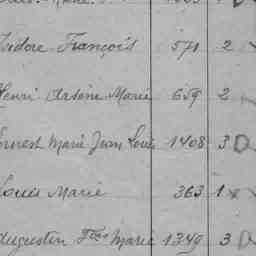 Isidore François 571 2
Henri Arsène Marie 659 2
Ernest Marie Jean Louis 1408 3 D
Louis Marie 363 1 x
Augustin Fois Marie 1349 3 D